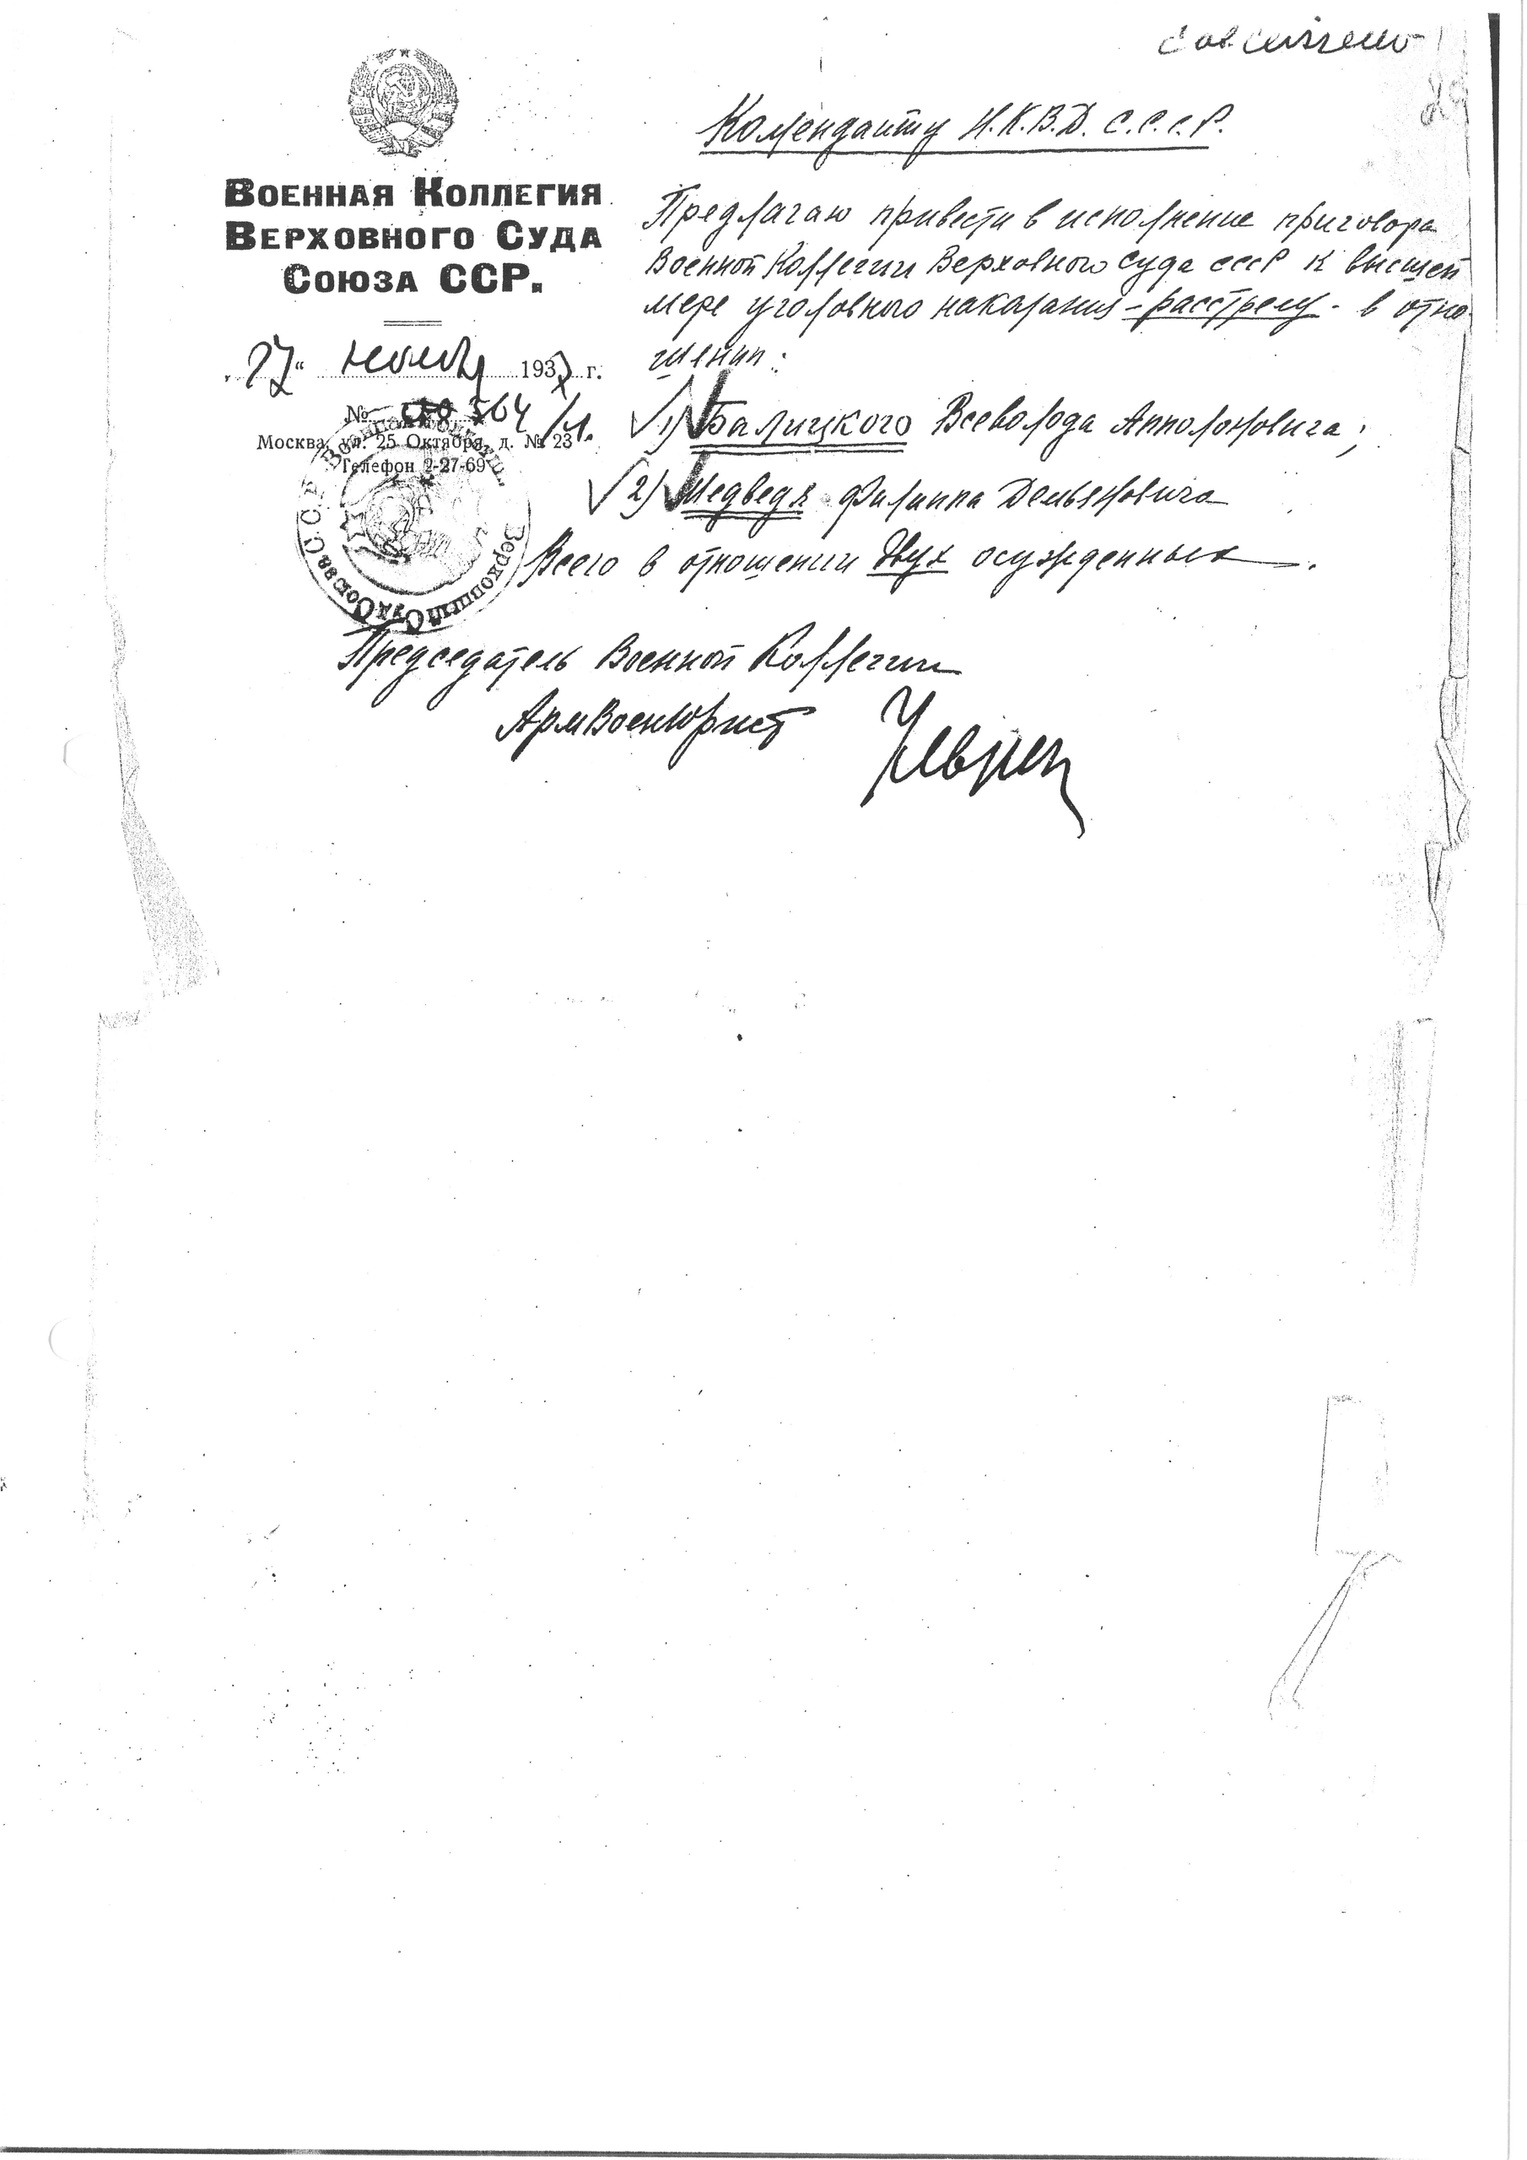 Сов. секретно
Коменданту Н.К.В.Д. С.С.С.Р.
ВОЕННАЯ КОЛЛЕГИЯ
ВЕРХОВНОГО СУДА
СОЮЗА ССР.
"27" ноября 1937 г.
№ 564/л.
Москва, ул. 25 Октября, д. № 23
Телефон 2-27-69
Предлагаю привести в исполнение приговора
Военной Коллегии Верховного Суда СССР к высшей
мере уголовного наказания – расстрелу – в отно
шении:
1) Балицкого Всеволода Апполоновича;
2) Медведя Филиппа Демьяновича
Всего в отношении двух осужденных.
Председатель Военной Коллегии
Армвоенюрист
Верховный Суд Союза С.С.Р.